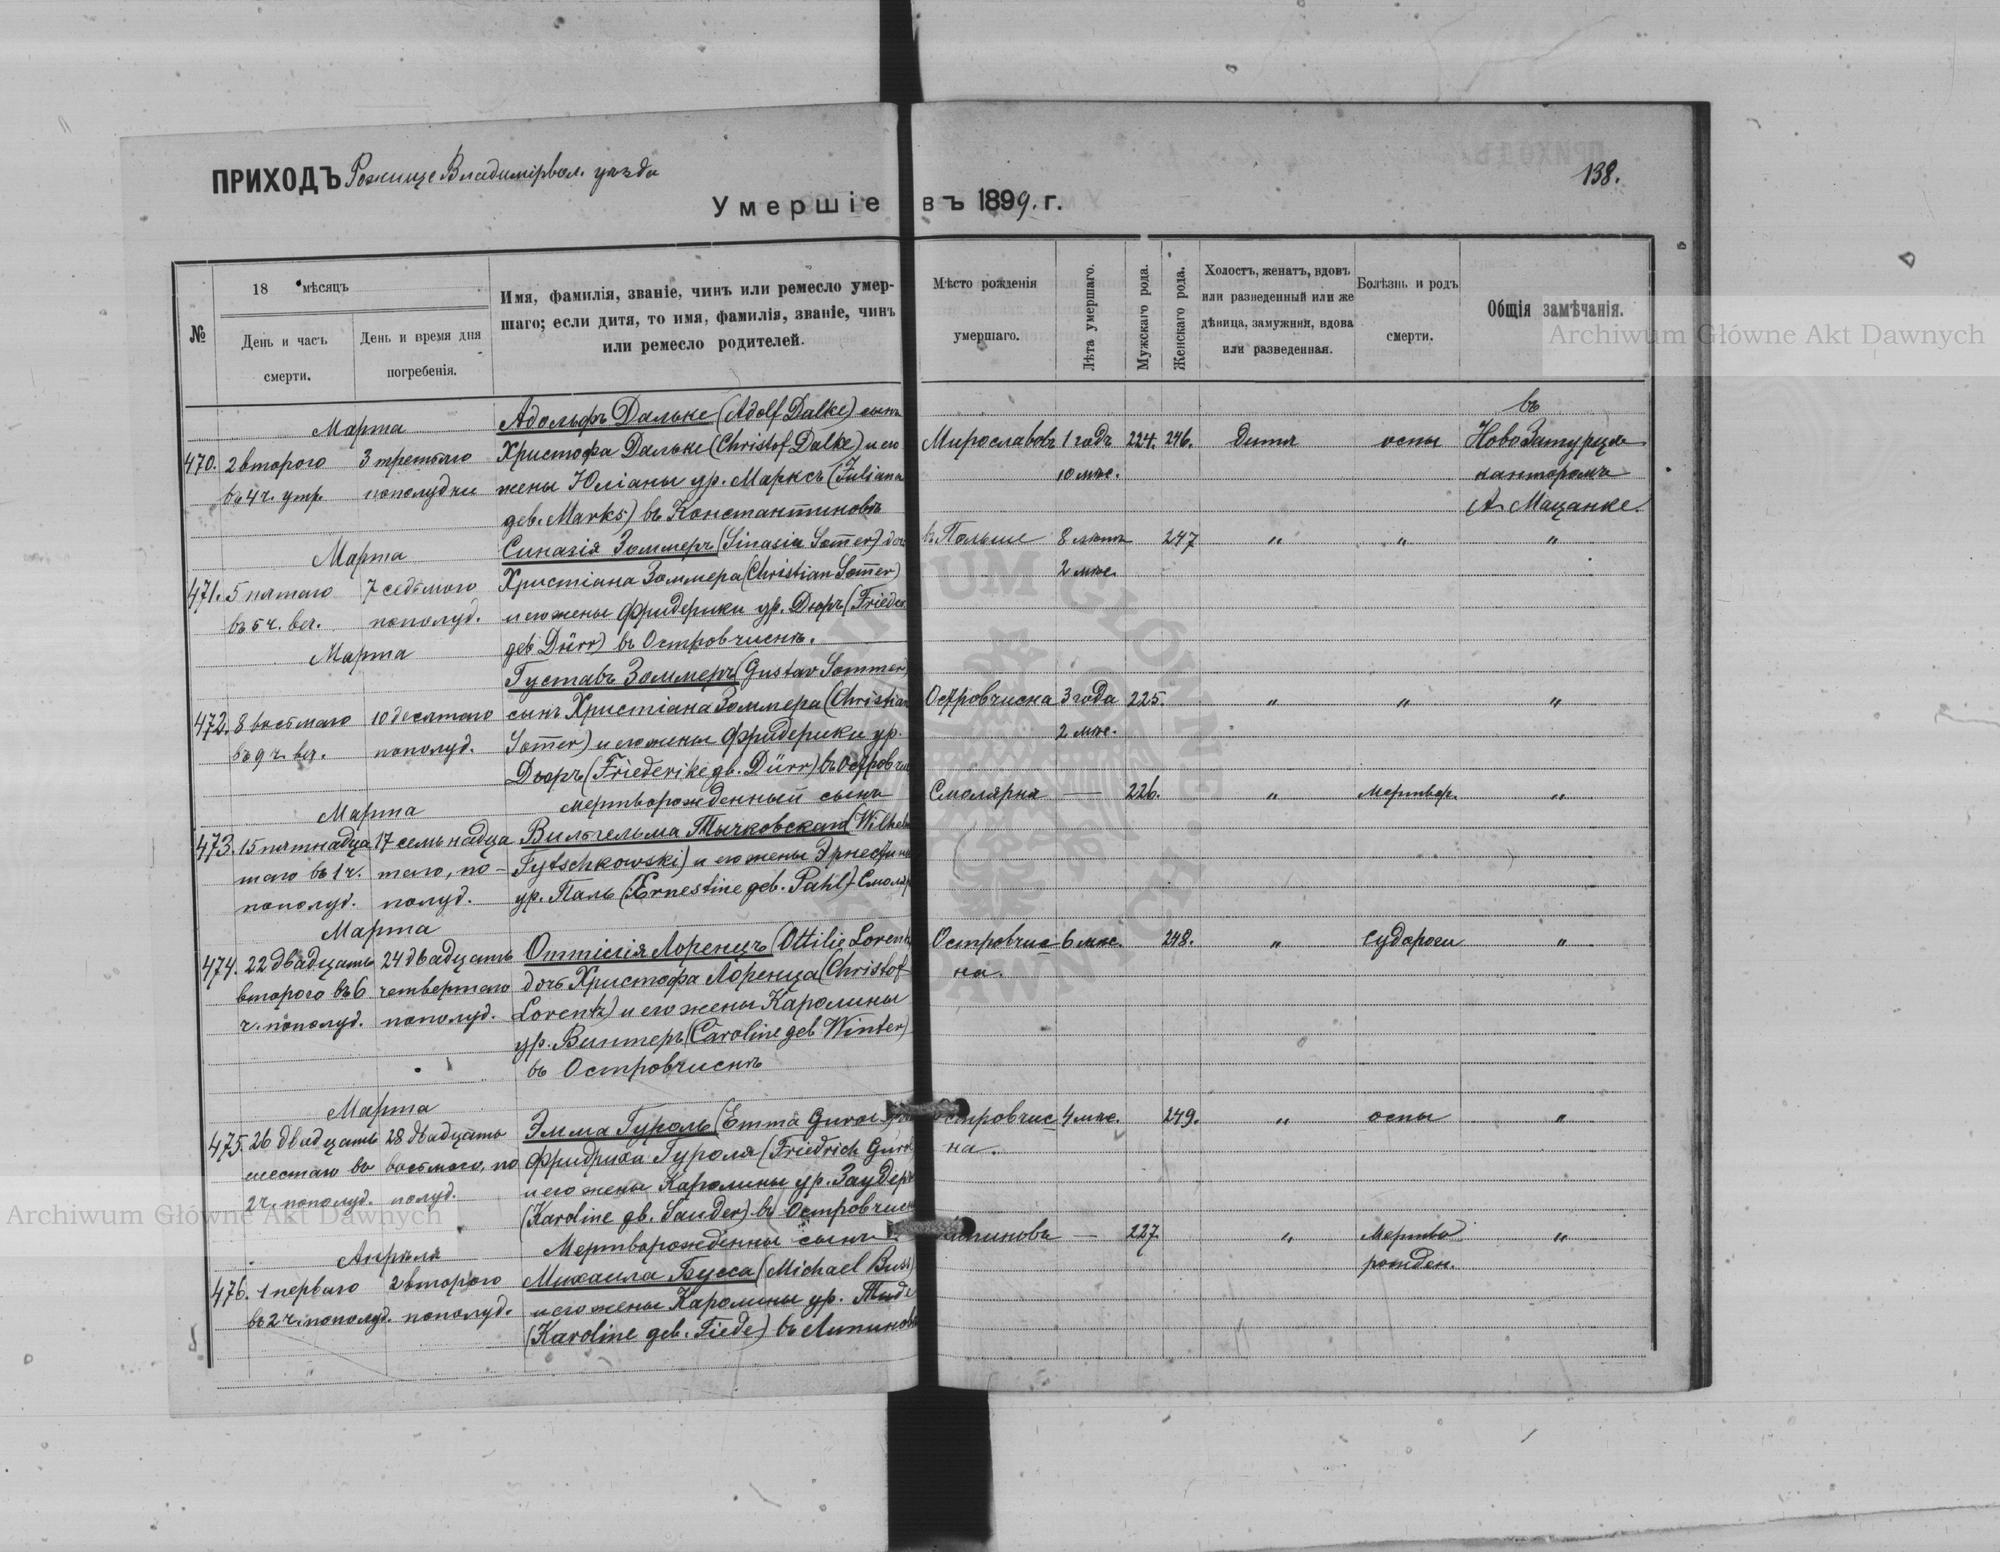 ПРИХОДЪ Рожище Владимірвол. уѣзда
138.
Умершіе въ 1899. г.
№
18 мѣсяцъ
День и часъ смерти.
День и время дня погребенія.
Имя, фамилія, званіе, чинъ или ремесло умер-
шаго; если дитя, то имя, фамилія, званіе, чинъ
или ремесло родителей.
Мѣсто рожденія
умершаго.
Лѣта умершаго.
Мужскаго рода.
Женскаго рода.
Холостъ, женатъ, вдовъ
или разведенный или же
дѣвица, замужняя, вдова
или разведенная.
Болѣзнь и родъ
смерти.
Общія замѣчанія.
Archiwum Główne Akt Dawnych
Марта
Адольфъ Дальке (Adolf Dalke) сынъ
въ
470. 2 второго 3 третьяго Христофа Дальке (Christof Dalke) и его Мирославовъ 1 годъ 224. 246. дитя оспы Ново Затурцѣ
въ 4 ч. утр. пополудни жены Юліаны ур. Марксъ (Juliana 10 мѣс. канторомъ
геб. Marks) въ Константиновѣ А. Мацанке.
Марта
Синазія Зоммеръ (Sinasia Som̅er) доч въ Польше 8 лѣтъ 247 „ „ „
471. 5 пятаго 7 седьмого Христіана Зоммера (Christian Som̅er) 2 мѣс.
въ 5 ч. веч. пополуд. и его жены Фридерики ур. Дюръ (Frieder.
Марта
geb Dürr) въ Островчискѣ.
Густавъ Зоммеръ (Gustav Sommer)
472. 8 восьмаго 10 десятаго сынъ Христіана Зоммера (Christian Островчиска 3 года 225. „ „ „
въ 9 ч. веч. пополуд. Som̅er) и его жены Фридерики ур. 2 мѣс.
Дюръ (Friederike gb. Dürr) въ Островчи
Марта
мертворожденный сынъ Смолярня — 226. „ Мертвор. „
473. 15 пятнадца 17 семьнадца Вильгельма Тычковскаго (Wilhelm
таго въ 1 ч. таго, по- Tytschkowski) и его жены Эрнестины
пополуд. полуд. ур. Паль (Ernestine geb. Pahl) Смоляр
Марта
474. 22 двадцать 24 двадцать Оттилія Лоренцъ (Ottilie Lorentz Островчис 6 мѣс. 248. „ судороги „
второго въ 6 четвертаго дочь Христофа Лоренца (Christof на.
ч. пополуд. пополуд. Lorentz) и его жены Каролины
ур. Винтеръ (Caroline geb Winter)
въ Островчискѣ
Марта
475. 26 двадцать 28 двадцать Эмма Гуроль (Emma Gurol Островчис 4 мѣс. 249. „ оспы „
шестаго въ восьмого, по Фридриха Гуроля (Friedrich Gurol на.
2 ч. пополуд. полуд. и его жены Каролины ур. Заудеръ
(Karoline gb. Sauder) въ Островчиск
Archiwum Główne Akt Dawnych
Апрѣля
Мертворожденны сынъ Липиновъ — 227 „ Мертво „
476. 1 перваго 2 второго Михаила Бусса (Michael Buss) рожден.
въ 2 ч. пополуд. пополуд. и его жены Каролины ур. Тиде
(Karoline geb. Tiede) въ Липиновѣ